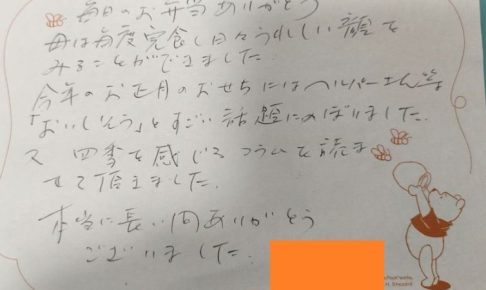 毎日のお弁当ありがとう
母は毎度完食し日々うれしい顔を
みることができました.
今年のお正月のおせちにはヘルパーさん等
「おいしそう」とすごい話題にのぼりました.
又 四季を感じるコラムを読ま
せて頂きました.
本当に長い間ありがとう
ございました.
H. Shepard